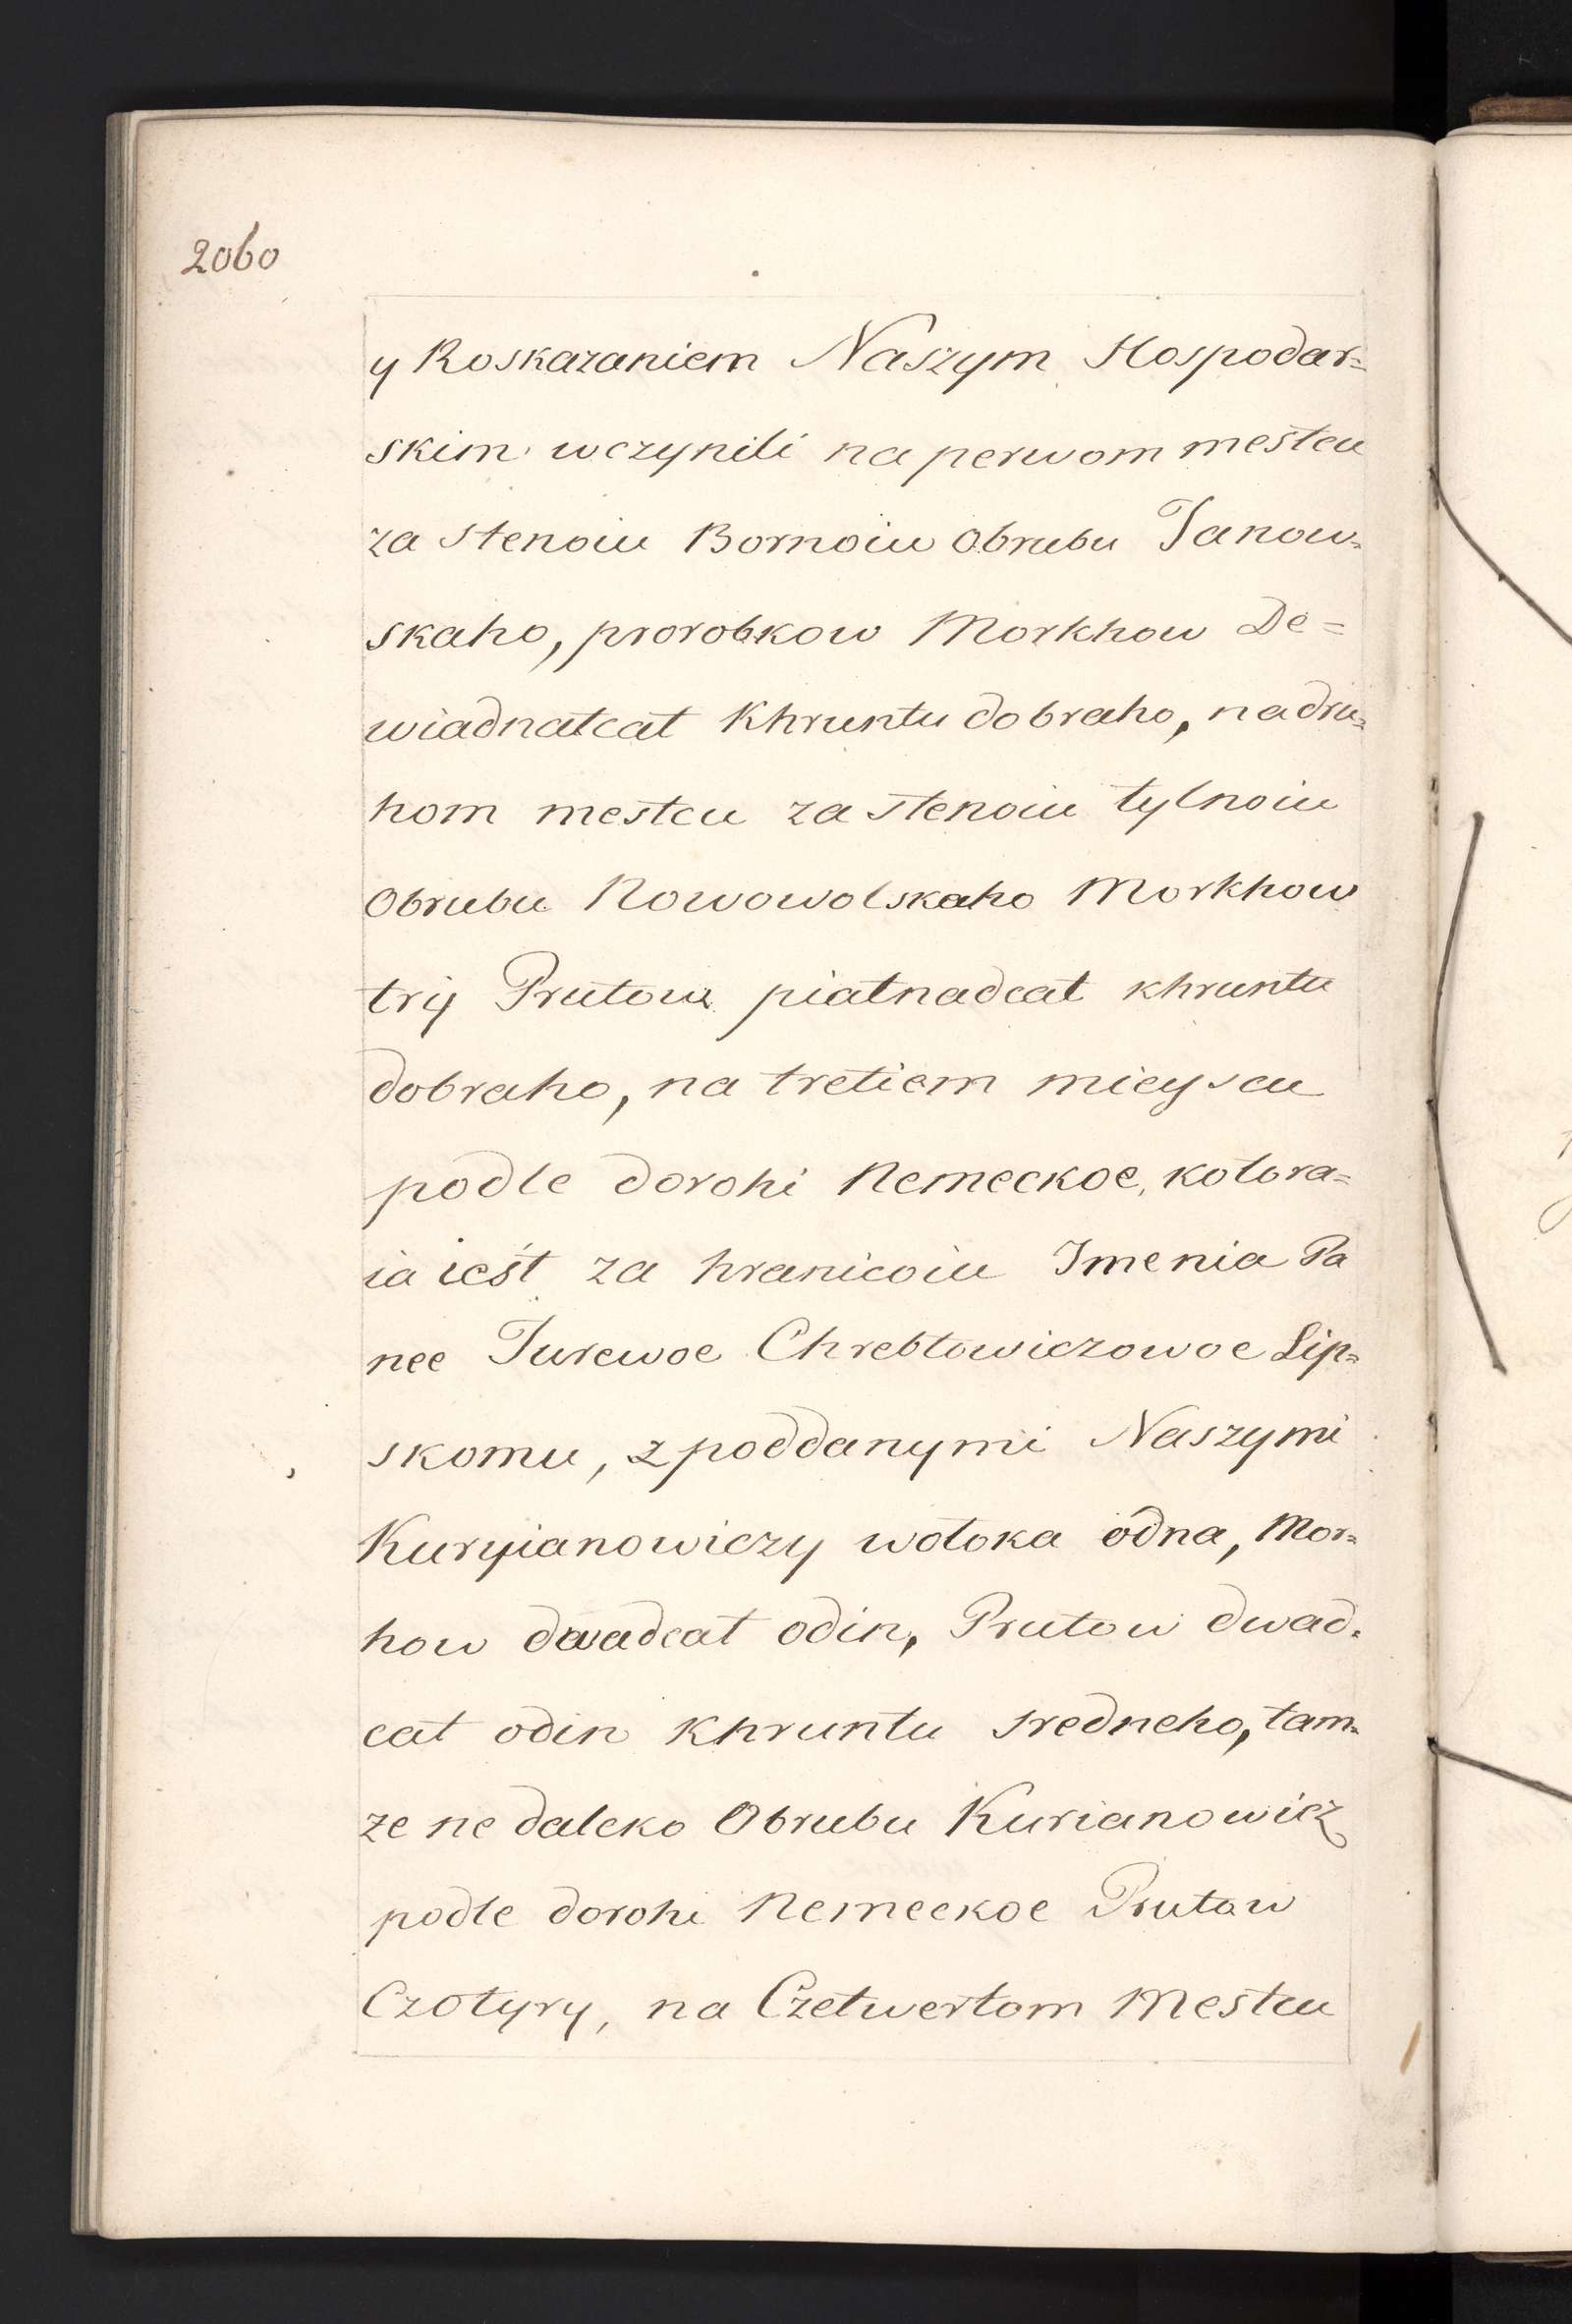 2060
y Roskazaniem Naszym Hospodar=
skim wczynili na perwom mestcu
za stenoiu Bornoiu Obrubu Janow=
skaho, prorobkow Morkhow De=
wiadnatcat Khruntu dobraho, na dru=
hom mestcu za stenoiu tylnoiu
Obrubu Nowowolskaho Morkhow
try Prutow piatnadcat khruntu
dobraho, na tretiem mieyscu
podle dorohi Nemeckoe, kotora=
ia iest za hranicoiu Imenia Pa
nee Jurewoe Chrebtowiczowoe Lip=
skomu, z poddanymi Naszymi
Kuryianowiczy wołoka odna, Mor=
how dwadcat odin, Prutow dwad=
cat odin khruntu sredneho, tam=
ze ne daleko Obrubu Kurianowicz
podle dorohi Nemeckoe Prutow
Czotyry, na Czetwertom Mestcu